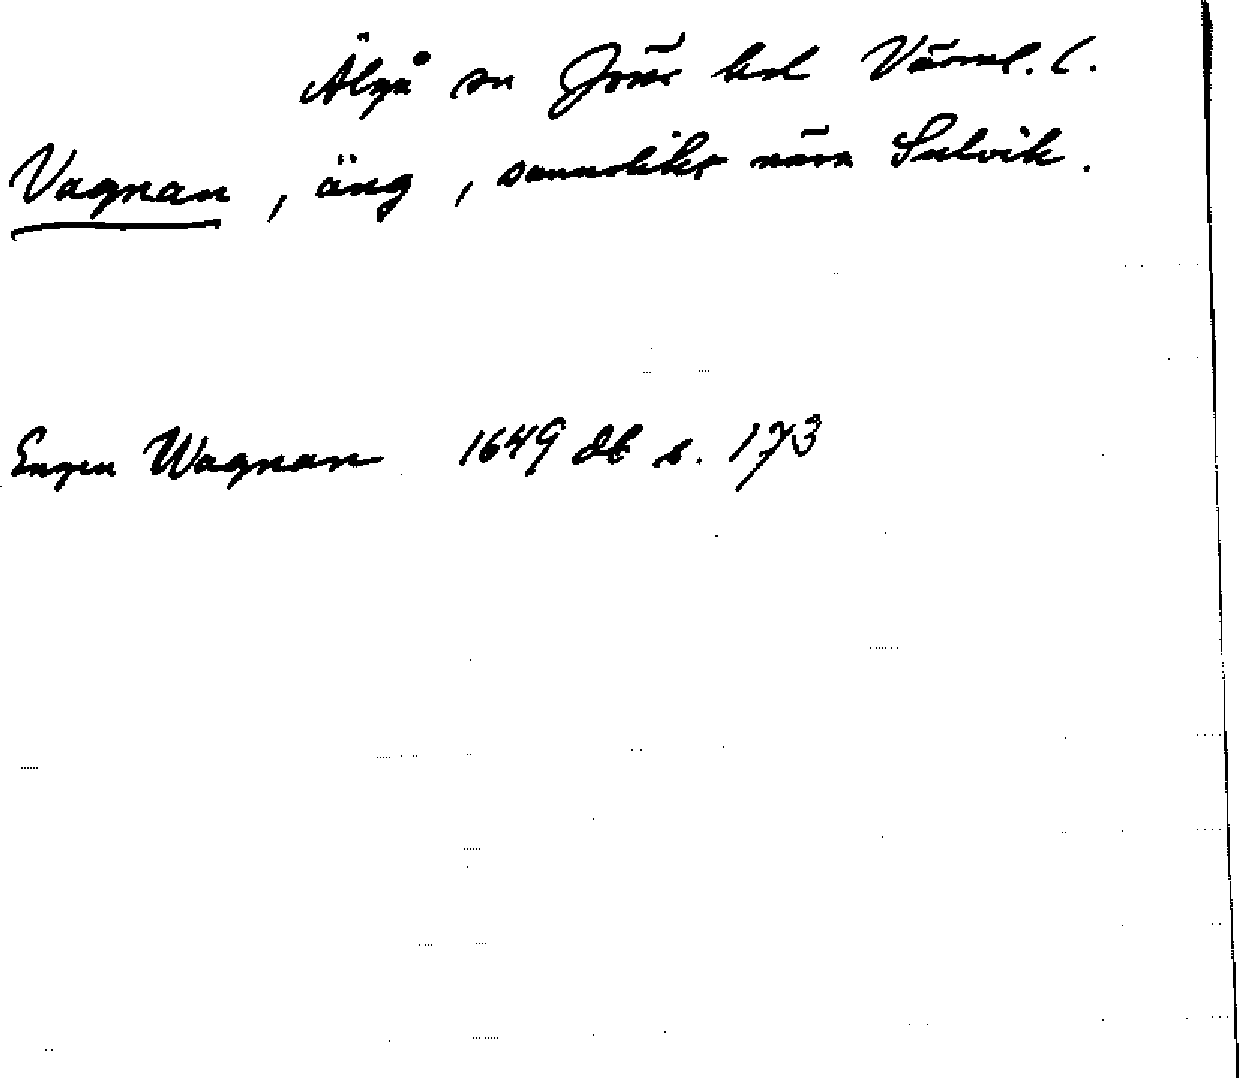 Älgå sn Jösse hd Värml. l.
Vagnan, äng, sannolikt nära Sulvik.
Engen Wagnan 1649 db s. 173